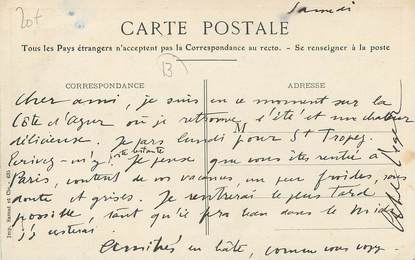 20+
Samedi
CARTE POSTALE
Tous les Pays étrangers n'acceptent pas la Correspondance au recto. - Se renseigner à la poste
B
CORRESPONDANCE
ADRESSE
Cher ami, je suis en ce moment sur la
Côte d'Azur où je retrouve l'été et une chaleur
M
délicieuse. Je pars lundi pour St Tropez.
Ecrivez-m'y poste restante. Je pense que vous êtes rentré à
Paris, content de vos vacances un peu froides, sans
doute et grises. Je rentrerai le plus tard
possible, tant qu'il fera beau dans le midi
j'y resterai.
Amitiés en hâte, comme vous voyez.